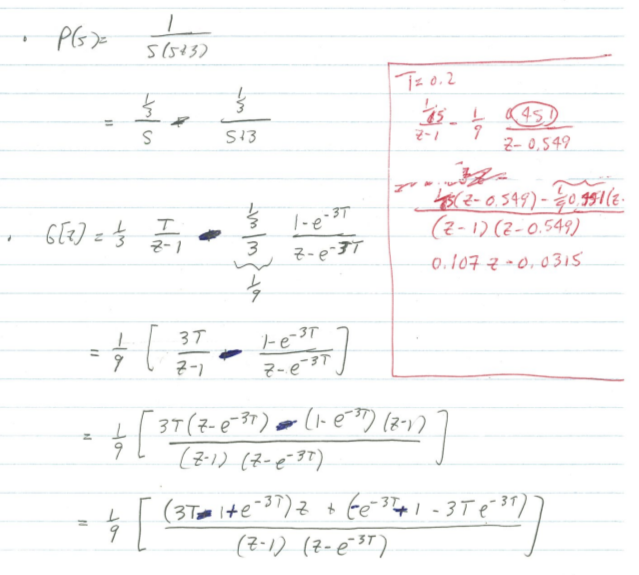 · P(s) = 1 / s(s+3)
= 1/3 / s - 1/3 / s+3
· G[z] = 1/3 T / z-1 - 1/3 / 3 1-e^-3T / z-e^-3T
1/9
= 1/9 [ 3T / z-1 - 1-e^-3T / z-e^-3T ]
= 1/9 [ 3T(z-e^-3T) - (1-e^-3T)(z-1) / (z-1) (z-e^-3T) ]
= 1/9 [ (3T-1+e^-3T)z + (-e^-3T+1-3Te^-3T) / (z-1) (z-e^-3T) ]
T=0.2
1/15 / z-1 - 1/9 0.451 / z-0.549
1/15(z-0.549) - 1/9 0.451(z-
(z-1)(z-0.549)
0.107z-0.0315